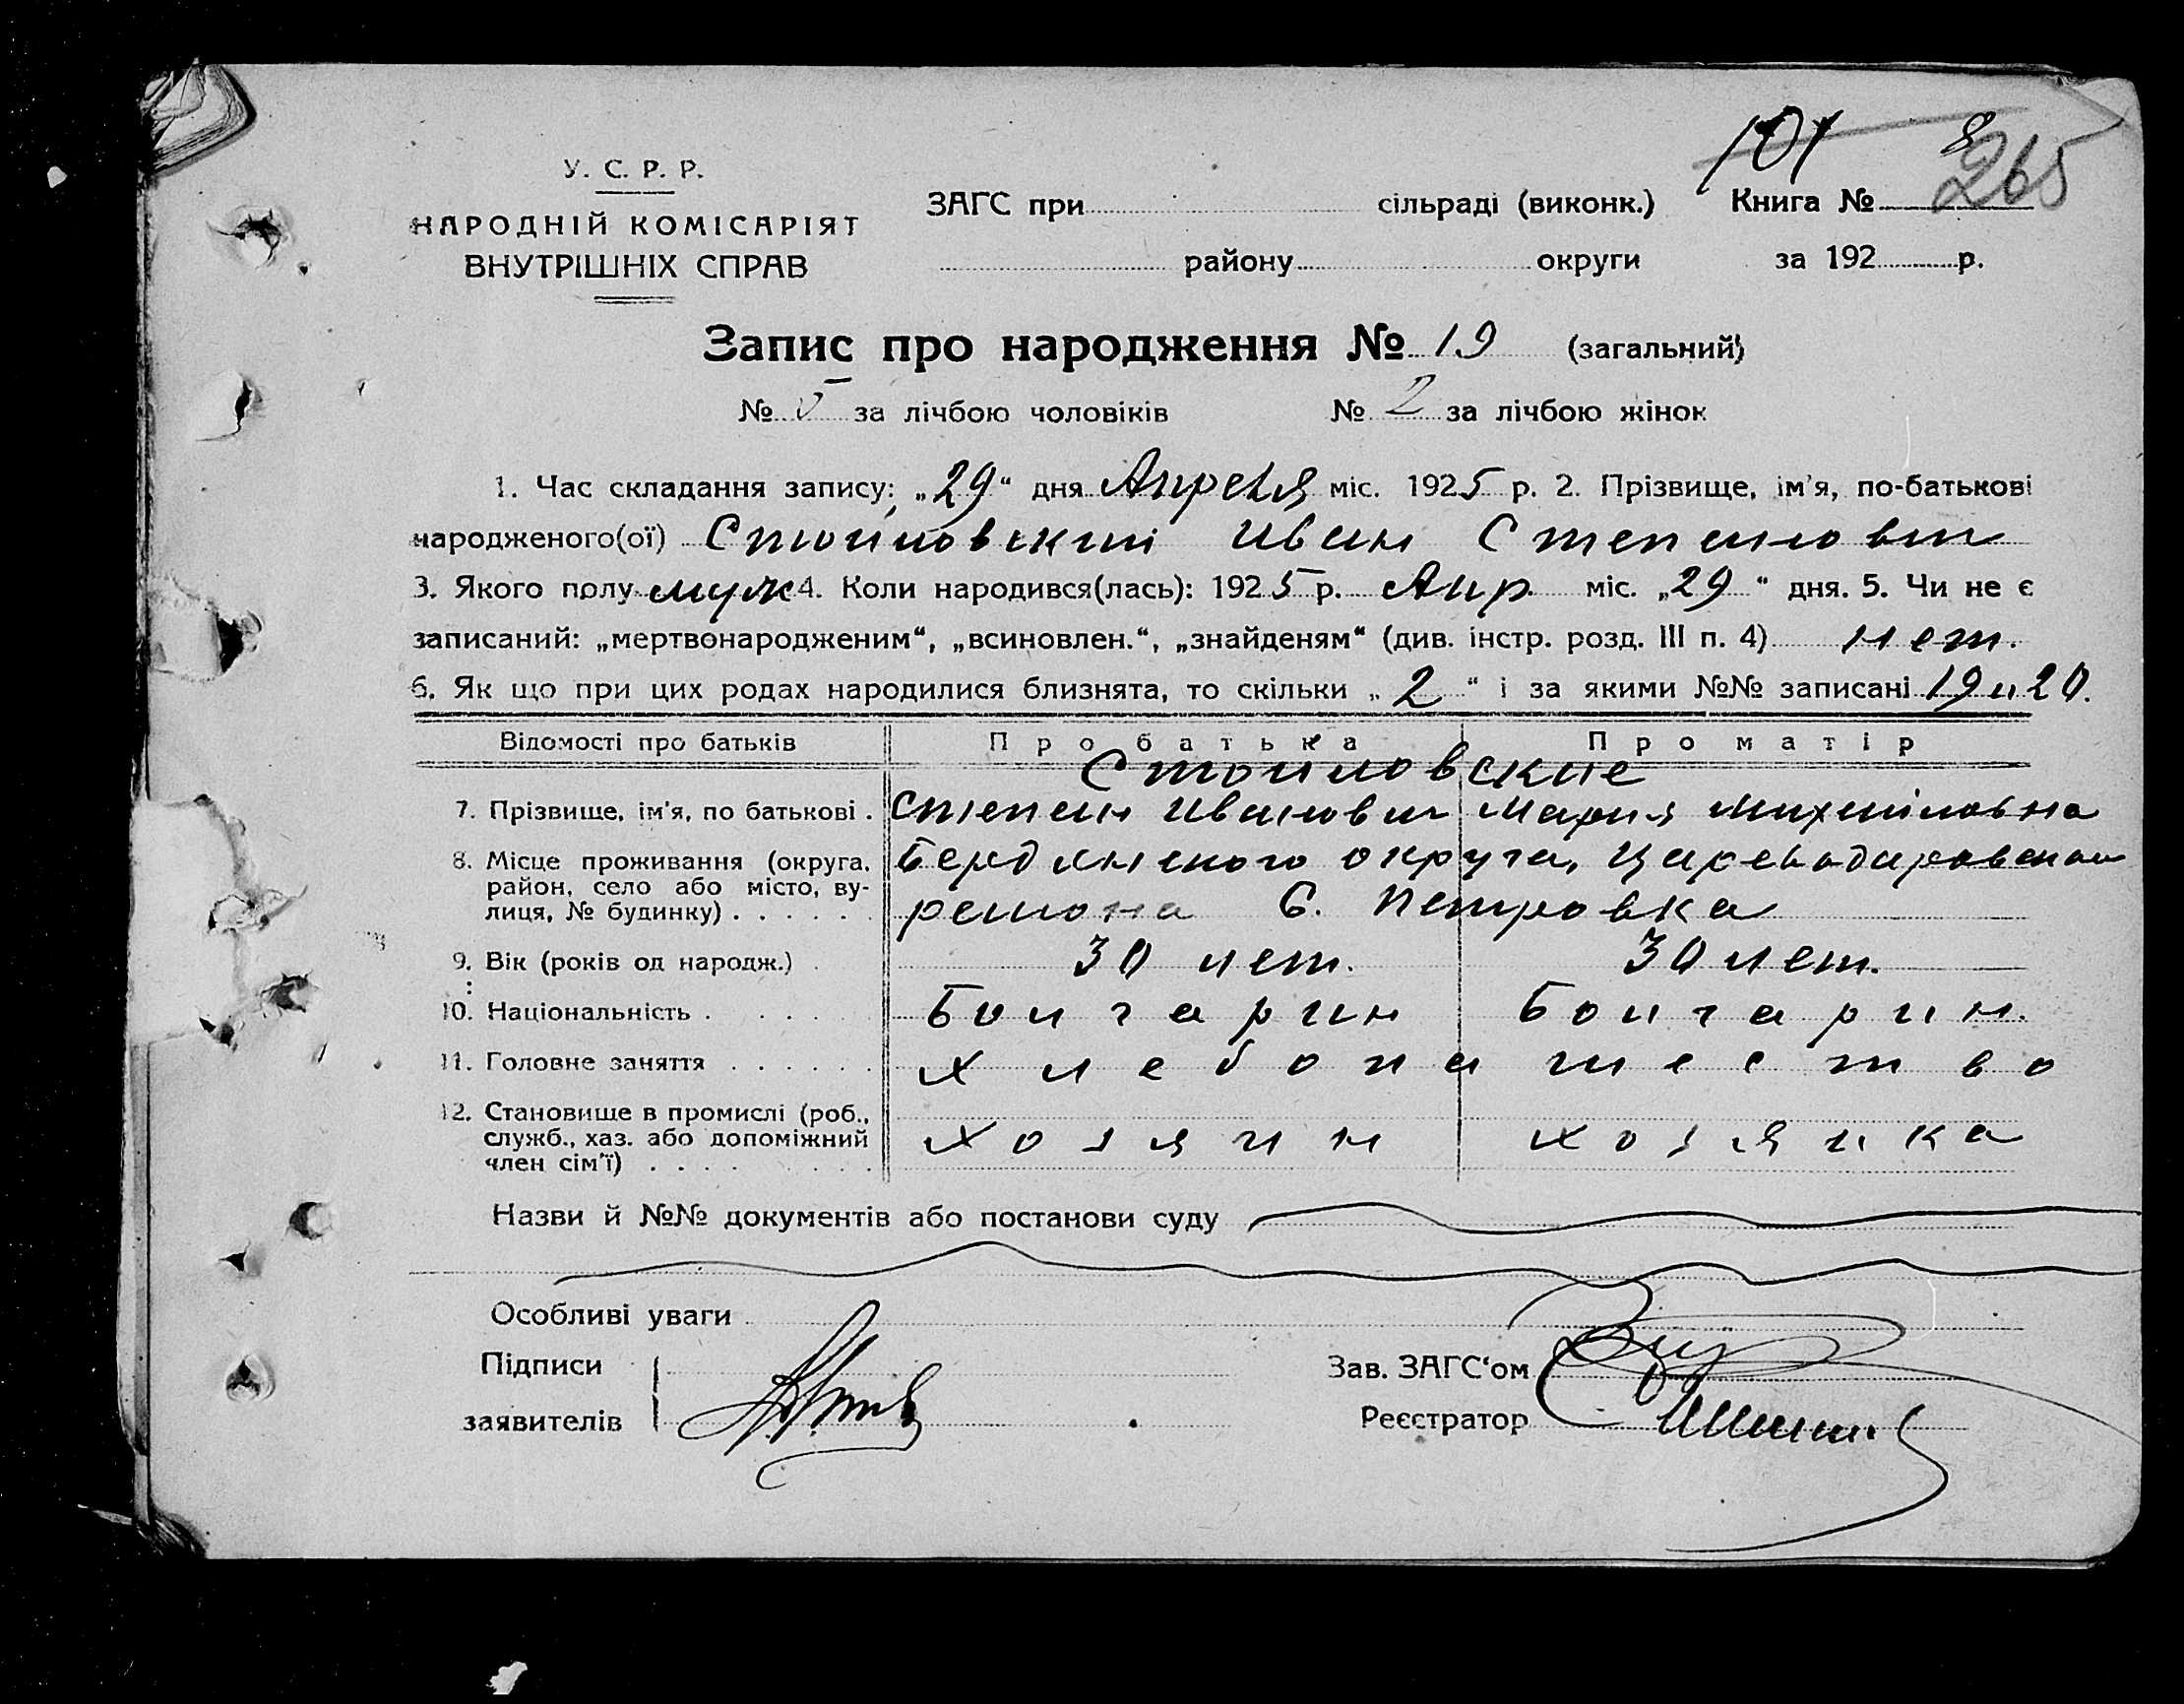 101 8
265
У. С. Р. Р.
НАРОДНІЙ КОМІСАРІЯТ
ВНУТРІШНІХ СПРАВ
ЗАГС при сільраді (виконк.) Книга №
району округи за 192 р.
Запис про народження № 19 (загальний)
№ за лічбою чоловіків № 2 за лічбою жінок
1. Час складання запису: „29“ дня Апреля міс. 1925 р. 2. Прізвище, ім'я, по-батькові
народженого(ої) Стойловский Иван Степанович
3. Якого полу муж 4. Коли народився(лась): 1925 р. Апр. міс. „29“ дня. 5. Чи не є
записаний: „мертвонародженим“, „всиновлен.“, „знайденям“ (див. інстр. розд. III п. 4) нет.
6. Як що при цих родах народилися близнята, то скільки „2“ і за якими №№ записані 19 и 20.
Відомості про батьків Про батька Про матір
Стойловские
7. Прізвище, ім'я, по батькові . Степан Иванович Мария Михайловна
8. Місце проживання (округа, Бердянского округа, Цареводаровского
район, село або місто, ву-
лиця, № будинку) . . . . . . района С. Петровка
9. Вік (років од народж.) . 30 лет. 30 лет.
10. Національність . . . . . Болгарин Болгарин.
11. Головне заняття . . . . . . хлебопашество
12. Становище в промислі (роб.,
служб., хаз. або допоміжний хозяин хозяйка
член сім'ї) . . . . . . . .
Назви й №№ документів або постанови суду
Особливі уваги
Підписи Зав. ЗАГС'ом
заявителів Реєстратор